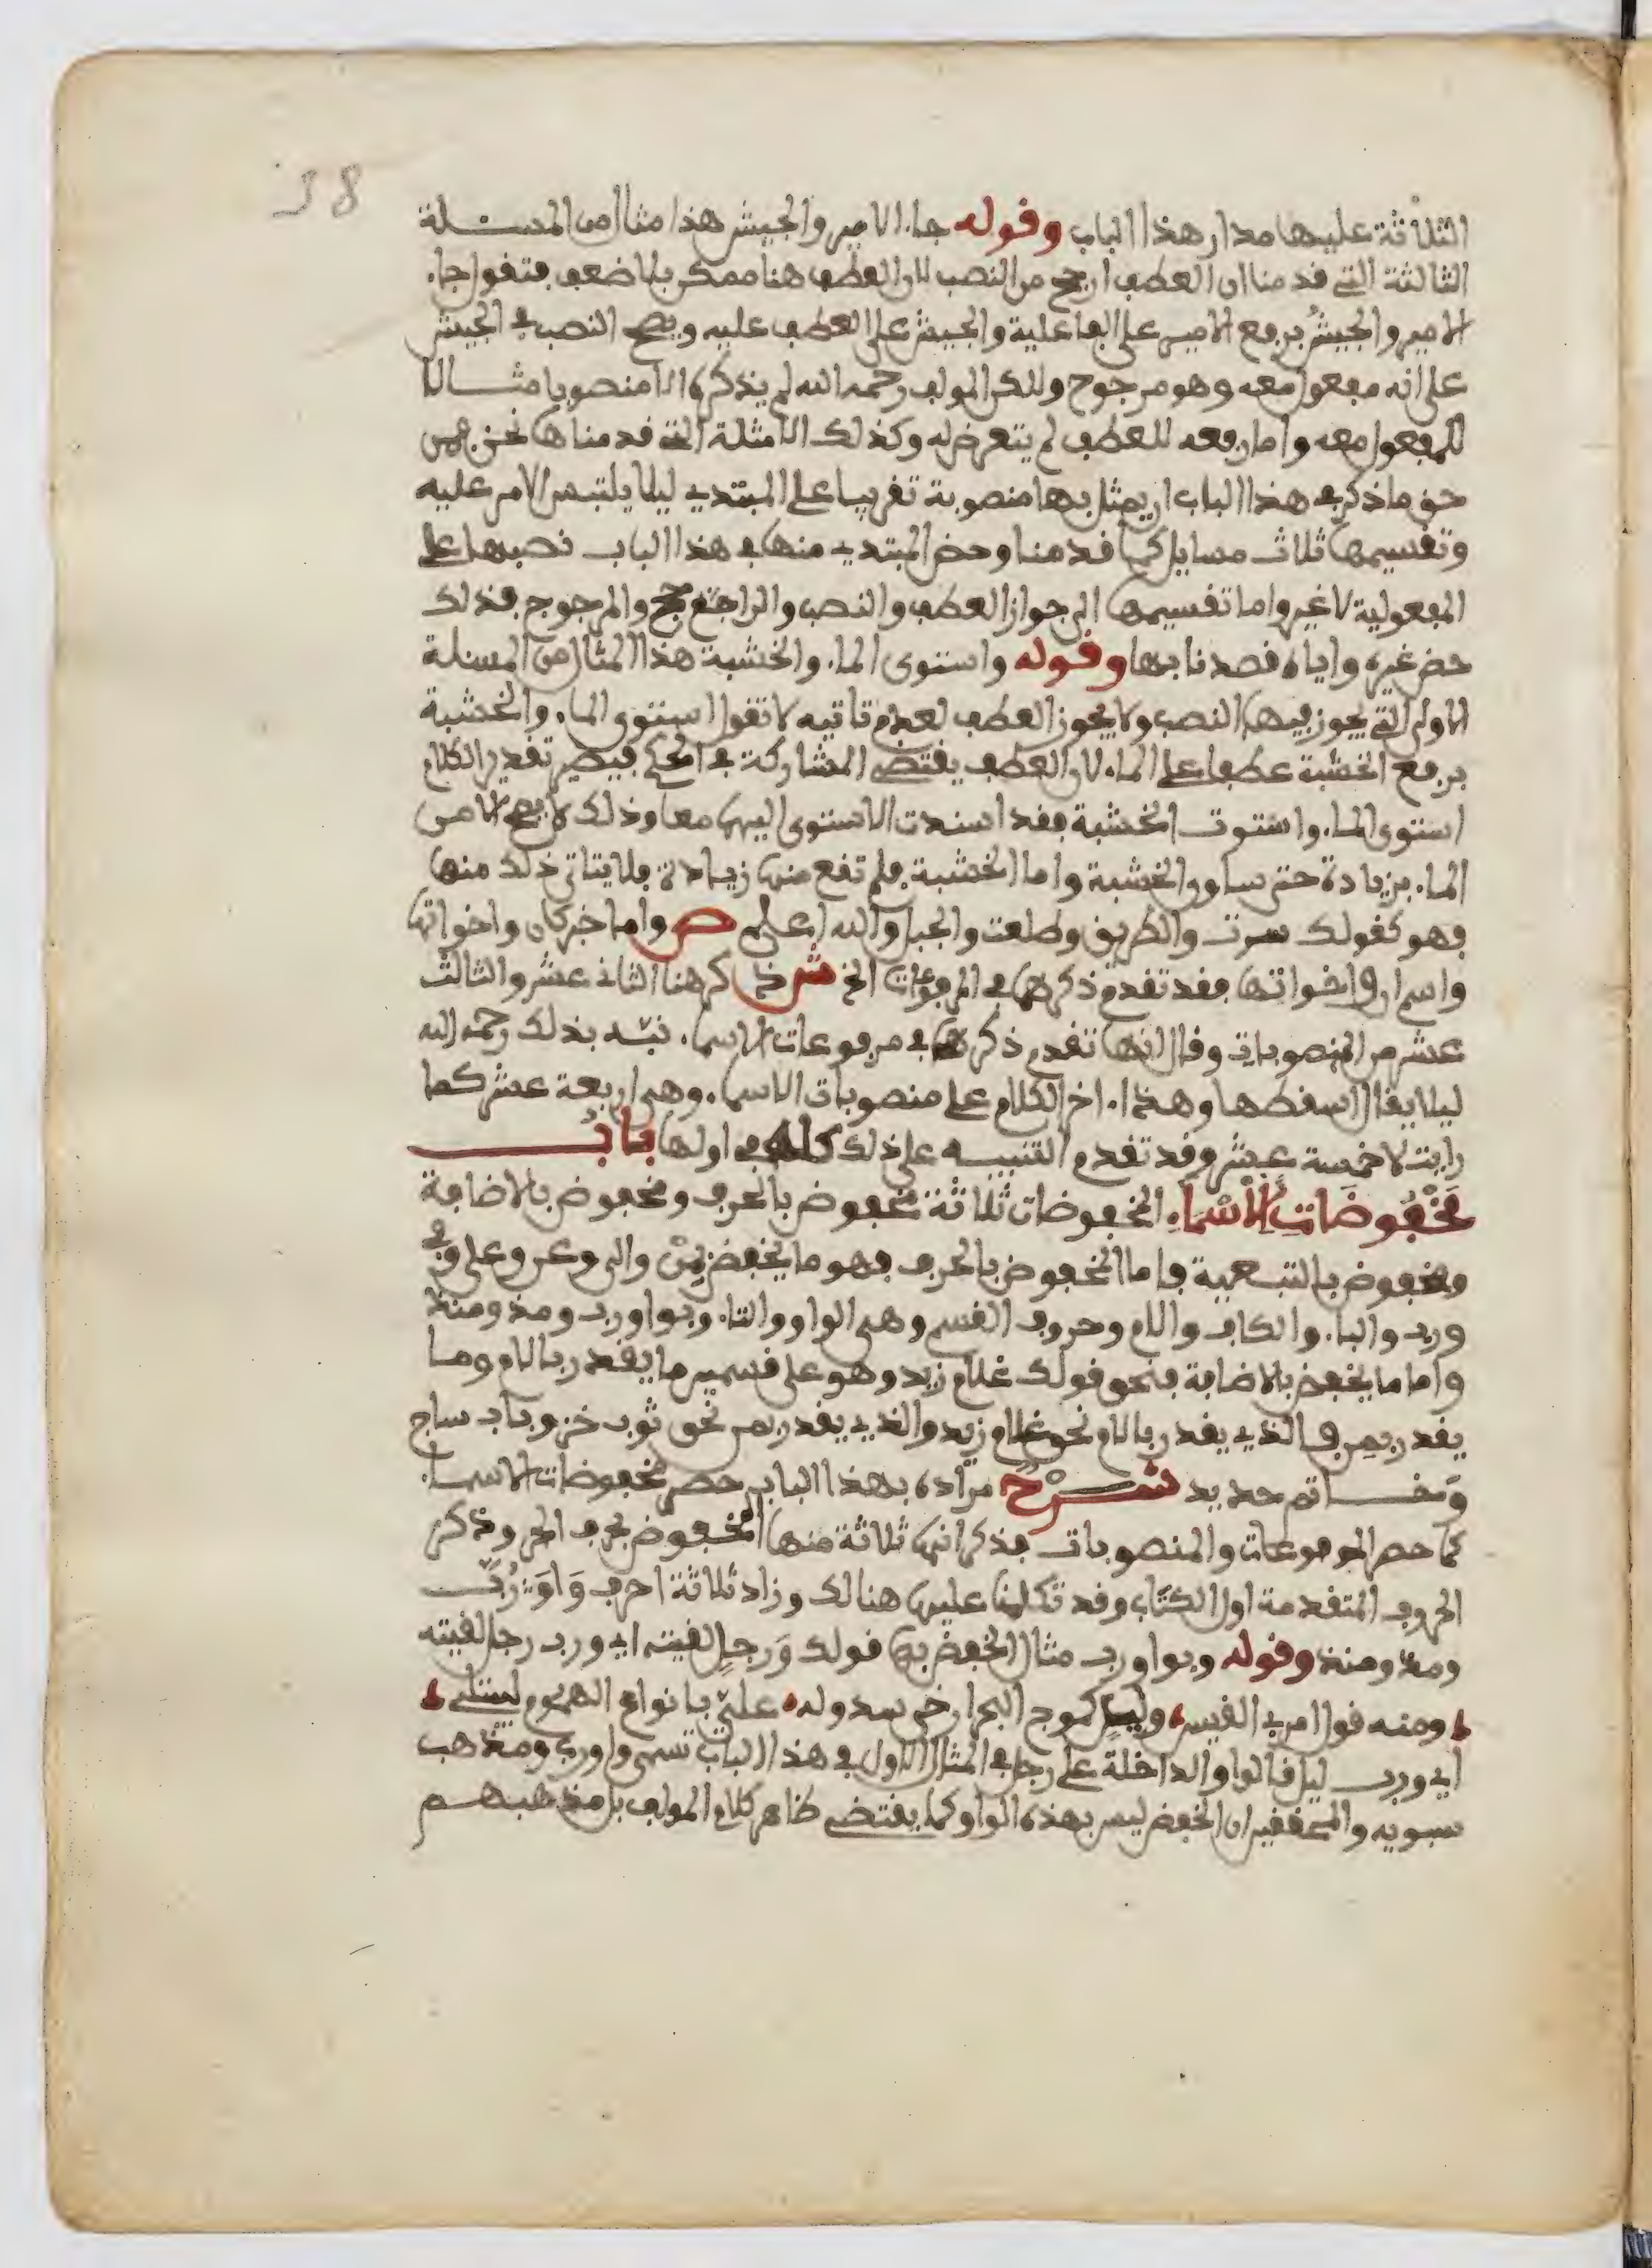 38
الثلاثة عليها مدار هذا الباب وقوله جاء الامير والجيش هذا مثال من المسئلة
الثالثة التي قدمنا ان العطف ارجح من النصب لان العطف هنا ممكن بلا ضعف فتقول جاء
الامير والجيشُ برفع الامير على الفاعلية والجيش على العطف عليه ويصح النصب في الجيش
على انه مفعول معه وهو مرجوح ولكن المولف رحمه الله لم يذكره الا منصوبا مثالا
للمفعول معه واما رفعه للعطف لم يتعرض له وكذلك الامثلة التي قدمناها نحن فمن
حق ما ذكر في هذا الباب ان يمثل بها منصوبة تقريبا على المبتدي ليلا يلتبس الامر عليه
وتقسيمها ثلاث مسايل كما قدمنا وحض المبتدي منها في هذا الباب نصبها على
المفعولية لا غير واما تقسيمها الى جواز العطف والنصب والراجح والمرجوح فذلك
حض غيره واياه قصدنا بها وقوله واستوى الماء والخشبة هذا المثال من المسئلة
الاولى التي يجوز فيها النصب ولا يجوز العطف لعدم تاتيه لا تقول استوى الماء والخشبة
برفع الخشبة عطفا على الماء لان العطف يقتضي المشاركة في الحكم فيصير تقدير الكلام
استوى الماء واستوت الخشبة فقد اسندت الاستوى اليهما معا وذلك لا يصح الا من
الماء بزيادة حتى ساوى الخشبة واما الخشبة فلم تقع منها زيادة فلا يتاتى ذلك منها
فهو كقولك سرت والطريق وطلعت والجبل والله اعلم ص واما خبر كان واخواتها
واسم ان واخواتها فقد تقدم ذكرهما في المرفوعات الخ ش ذكر هنا الثاني عشر والثالث
عشر من المنصوبات وقال انها تقدم ذكرها في مرفوعات الاسماء نبّه بذلك رحمه الله
ليلا يقال اسقطها وهذا اخر الكلام على منصوبات الاسماء وهي اربعة عشر كما
رايت لا خمسة عشر وقد تقدم التنبيه على ذلك كله في اولها بابُ
مَخْفُوضَاتِ الاسْمَاءِ المخفوضات ثلاثة مخفوض بالحرف ومخفوض بالاضافة
ومخفوض بالتبعية فاما المخفوض بالحرف فهو ما يخفض بِمِنْ والى وعن وعلى وفي
ورب والباء والكاف واللام وحروف القسم وهي الواو والتاء وبواو رب ومذ ومنذ
واما ما يخفض بالاضافة فنحو قولك غلام زيد وهو على قسمين ما يقدر باللام وما
يقدر بمن فالذي يقدر باللام نحو غلام زيد والذي يقدر بمن نحو ثوب خز وباب ساج
وَخاتم حديد شَرْحٌ مراده بهذا الباب حصر مخفوضات الاسماء
كما حصر المرفوعات والمنصوبات فذكر انها ثلاثة منها المخفوض بحرف الجر وذكر
الحروف المتقدمة اول الكتاب وقد تكلمنا عليها هنالك وزاد ثلاثة احرف وَاوَ رُبَّ
ومذ ومنذ وقوله وبواو رب مثال الخفض بها قولك وَرجلٍ لقيته اي ورب رجل لقيته
ومنه قول امرئ القيس وليلٍ كموج البحر ارخى سدوله عليّ بانواع الهموم ليبتلي
اي ورب ليل فالواو الداخلة على رجل في المثال الاول في هذا الباب تسمى واو رب ومذهب
سبويه والمحققين ان الخفض ليس بهذه الواو كما يقتضي ظاهر كلام المولف بل مذهبهم